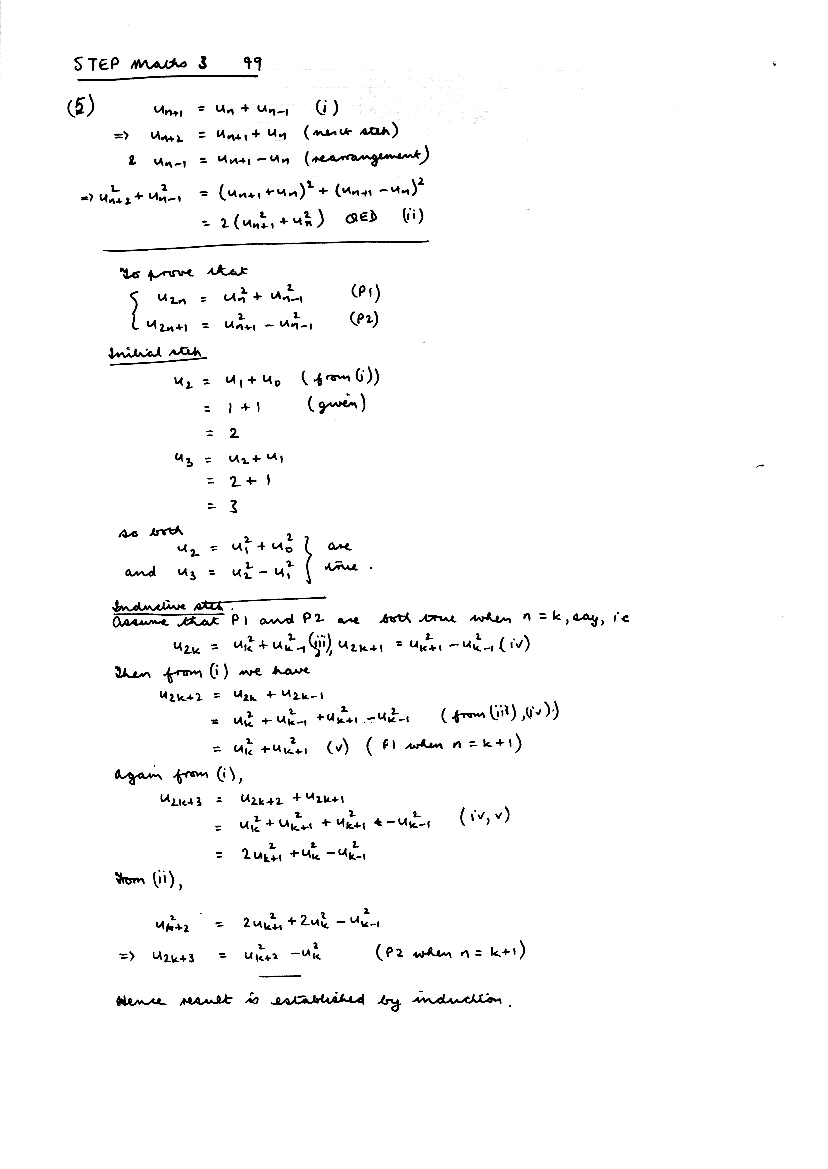 STEP Maths 3 99
(5) uₙ₊₁ = uₙ + uₙ₋₁ (i)
=> uₙ₊₂ = uₙ₊₁ + uₙ (next step)
& uₙ₋₁ = uₙ₊₁ − uₙ (rearrangement)
=> u²ₙ₊₂ + u²ₙ₋₁ = (uₙ₊₁ + uₙ)² + (uₙ₊₁ − uₙ)²
= 2(u²ₙ₊₁ + u²ₙ) QED (ii)
To prove that
{ u₂ₙ = u²ₙ + u²ₙ₋₁ (P1)
u₂ₙ₊₁ = u²ₙ₊₁ − u²ₙ₋₁ (P2)
Initial step
u₂ = u₁ + u₀ (from (i))
= 1 + 1 (given)
= 2
u₃ = u₂ + u₁
= 2 + 1
= 3
so both
u₂ = u₁² + u₀² } are
and u₃ = u₂² − u₁² } true.
Inductive step.
Assume that P1 and P2 are both true when n = k, say, ie
u₂ₖ = u²ₖ + u²ₖ₋₁ (iii), u₂ₖ₊₁ = u²ₖ₊₁ − u²ₖ₋₁ (iv)
Then from (i) we have
u₂ₖ₊₂ = u₂ₖ + u₂ₖ₋₁
= u²ₖ + u²ₖ₋₁ + u²ₖ₊₁ − u²ₖ₋₁ (from (iii), (iv))
= u²ₖ + u²ₖ₊₁ (v) (P1 when n = k+1)
Again from (i),
u₂ₖ₊₃ = u₂ₖ₊₂ + u₂ₖ₊₁
= u²ₖ + u²ₖ₊₁ + u²ₖ₊₁ − u²ₖ₋₁ (iv, v)
= 2u²ₖ₊₁ + u²ₖ − u²ₖ₋₁
From (ii),
u²ₖ₊₂ = 2u²ₖ₊₁ + 2u²ₖ − u²ₖ₋₁
=> u₂ₖ₊₃ = u²ₖ₊₂ − u²ₖ (P2 when n = k+1)
Hence result is established by induction.